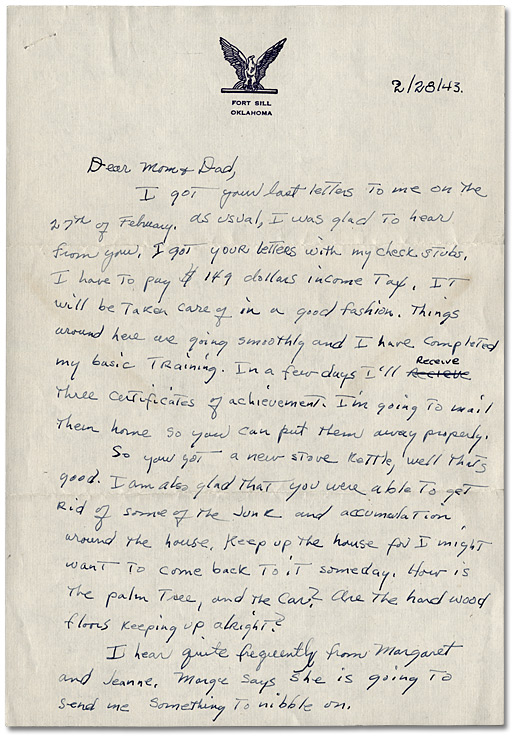 FORT SILL
OKLAHOMA
2/28/43.
Dear Mom & Dad,
I got your last letters to me on the
27th of February. as usual, I was glad to hear
from you. I got your letters with my check stubs.
I have to pay $ 149 dollars income Tax. IT
will be Taken care of in a good fashion. Things
around here are going smoothly and I have completed
my basic Training. In a few days I'll Receive
Three certificates of achievement. I'm going to mail
Them home so you can put them away properly.
So you got a new stove kettle, well that's
good. I am also glad that you were able to get
Rid of some of the Junk and accumulation
around the house. Keep up the house for I might
want to come back To it someday. How is
The palm Tree, and the Car? Are the hard wood
floors keeping up alright?
I hear quite frequently from Margaret
and Jeanne. Margie says she is going to
send me something To nibble on.